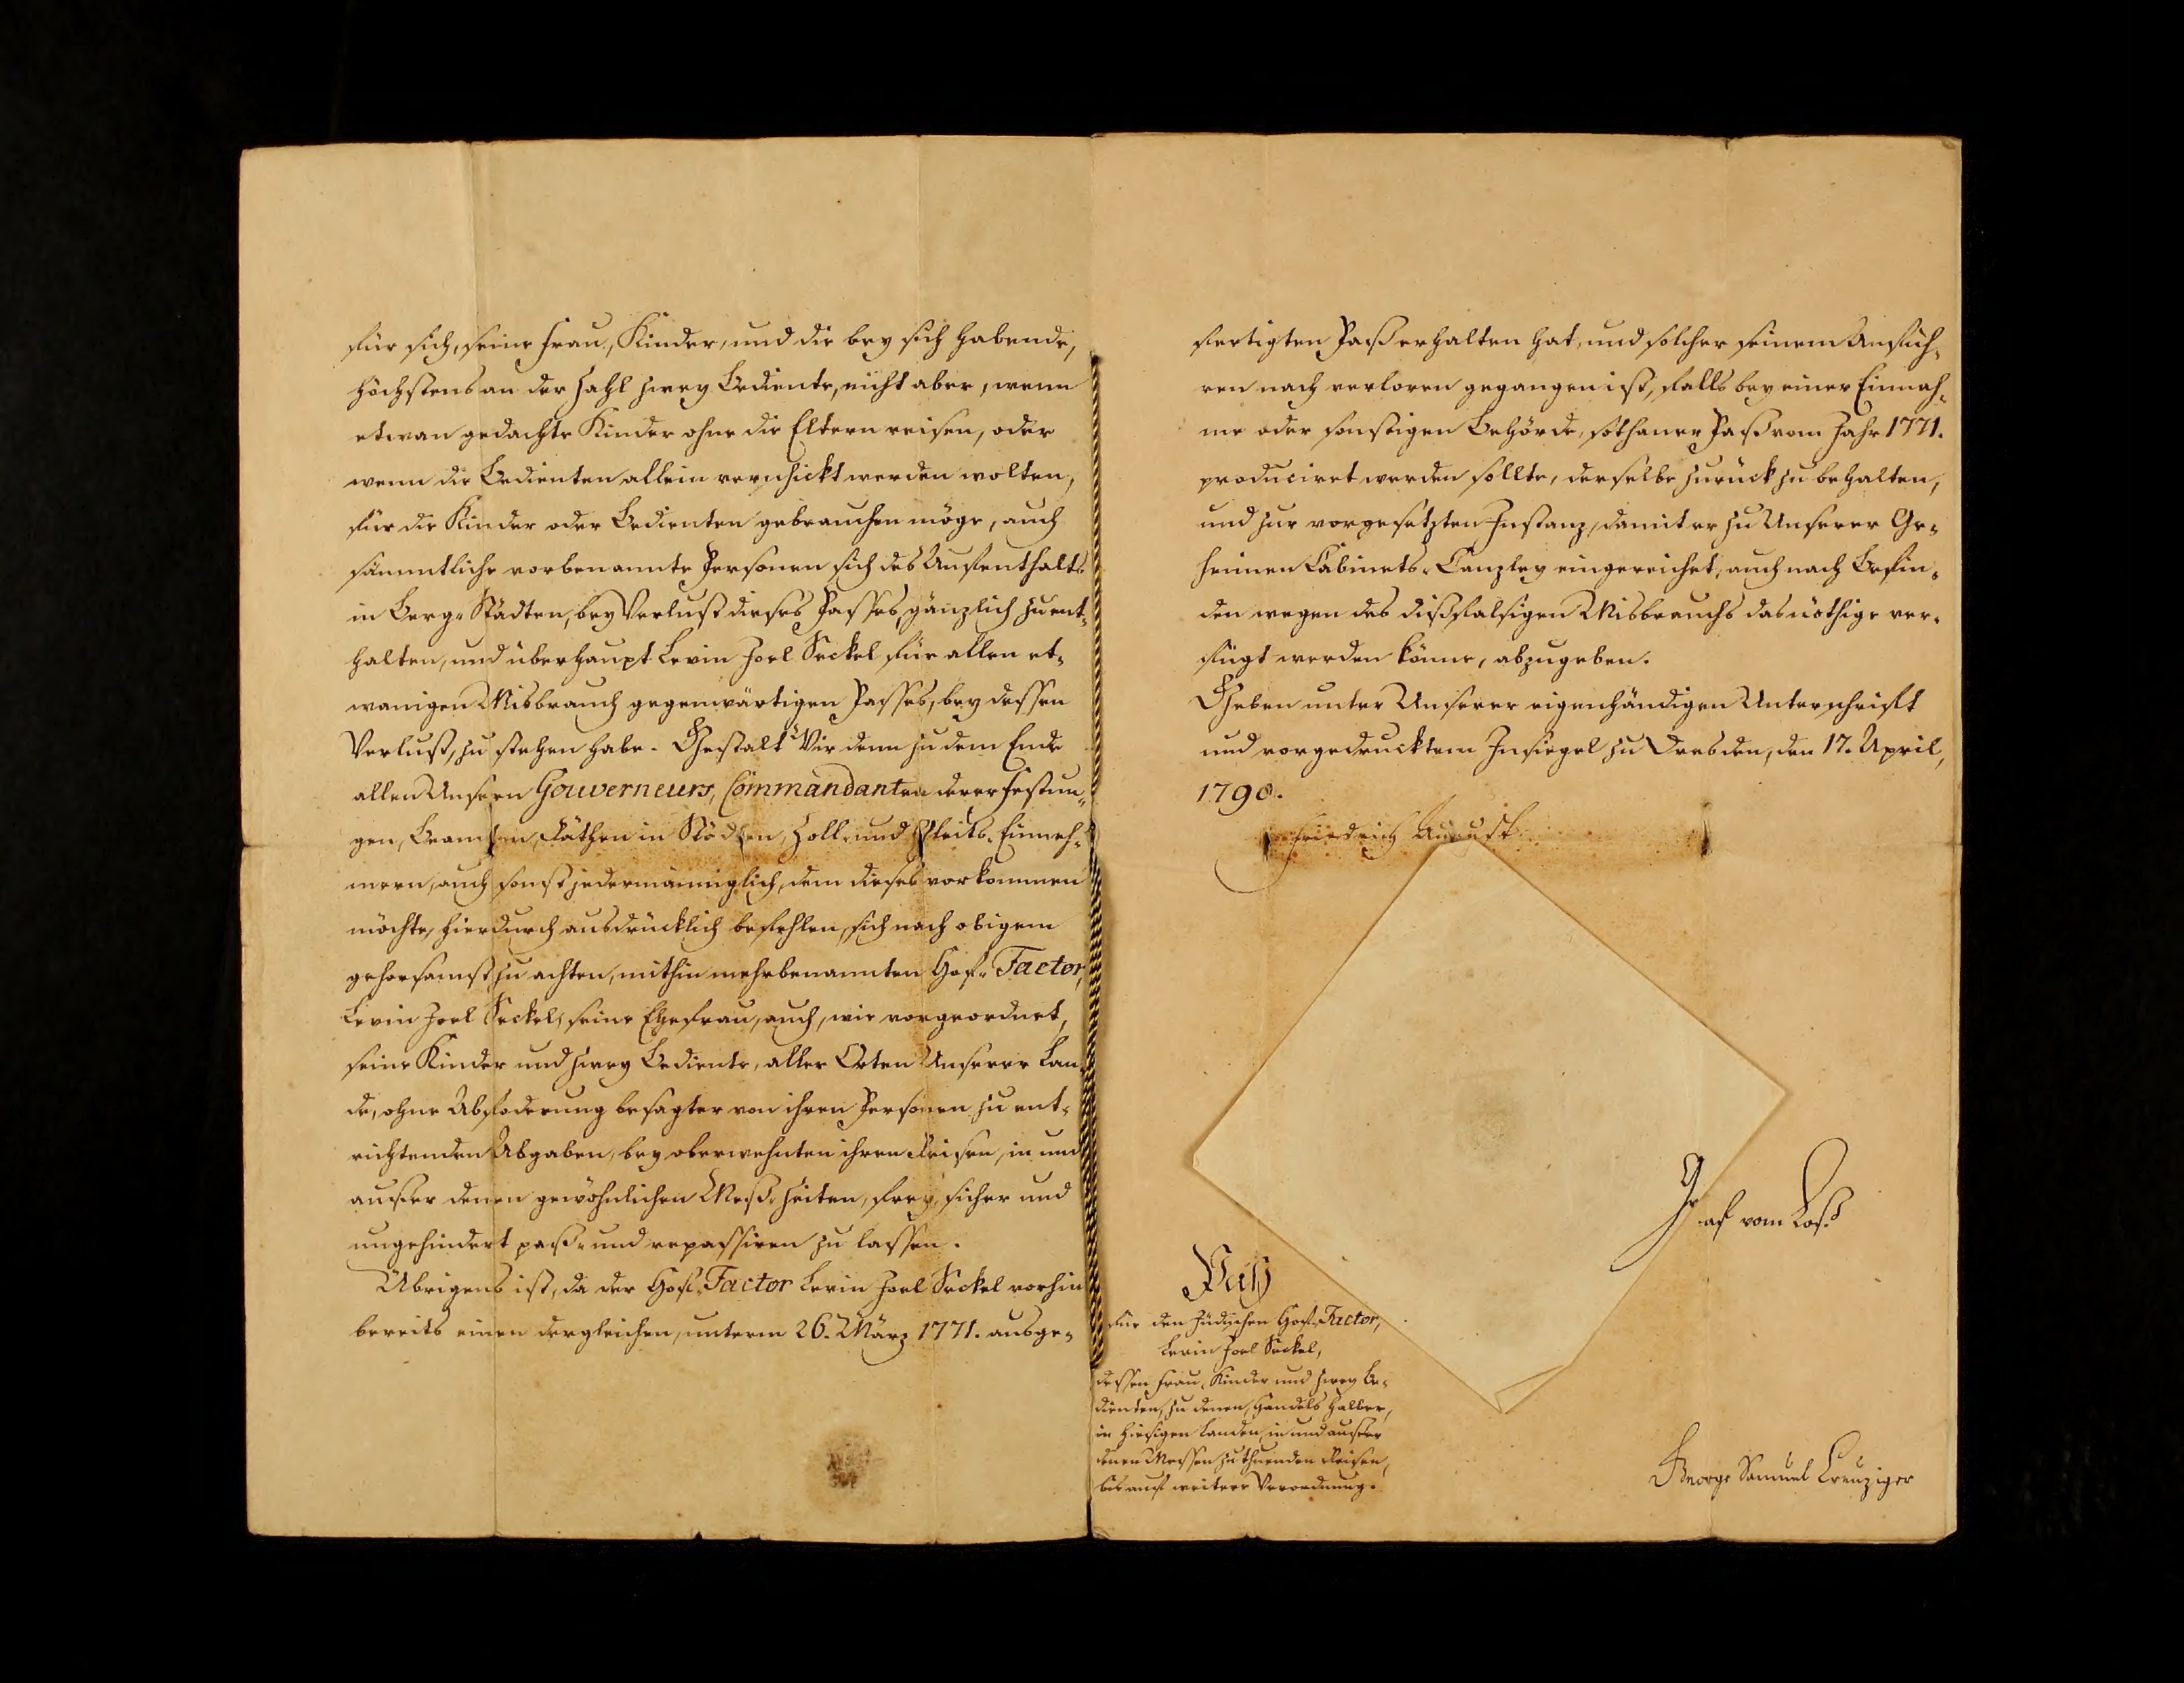 für sich, seine Frau, Kinder, und die bey sich habende,
höchstens an der Zahl zwey Bediente, nicht aber, wenn
etwan gedachte Kinder ohne die Eltern reisen, oder
wenn die Bedienten allein verschickt werden wolten,
für die Kinder oder Bedienten gebrauchen möge, auch
sämmtliche vorbenannte Personen sich des Aufenthalts
in Berg-Städten, bey Verlust dieses Passes, gänzlich zu ent-
halten, und überhaupt Levin Joel Seckel für allen et-
wanigen Misbrauch gegenwärtigen Passes, bey dessen
Verlust, zu stehen habe. Gestalt Wir denn zu dem Ende
allen Unsern Gouverneurs, Commandanten derer Festun-
gen, Beamten, Räthen in Städten, Zoll- und Gleits-Einneh-
mern, auch sonst jedermänniglich, dem dieses vorkommen
möchte, hierdurch ausdrücklich befehlen, sich nach obigem
gehorsamst zu achten, mithin mehrbenannten Hof-Factor,
Levin Joel Seckel, seine Ehefrau, auch, wie vorgeordnet,
seine Kinder und zwey Bediente, aller Orten Unserer Lan-
de, ohne Abfoderung besagter von ihren Personen zu ent-
richtenden Abgaben, bey oberwehnten ihren Reisen, in und
außer denen gewöhnlichen Meß-Zeiten, frey, sicher und
ungehindert paß- und repassiren zu lassen.
Übrigens ist, da der Hof-Factor Levin Joel Seckel vorhin
bereits einen dergleichen, unterm 26. März 1771. ausge-
fertigten Paß erhalten hat, und solcher seinem Anfüh-
ren nach verloren gegangen ist, falls bey einer Einnah-
me oder sonstigen Behörde, sothaner Paß vom Jahr 1771.
produciret werden sollte, derselbe zurück zu behalten,
und zur vorgesetzten Instanz, damit er zu Unserer Ge-
heimen Cabinets-Canzley eingereichet, auch nach Befin-
den wegen des dißfalsigen Misbrauchs das nöthige ver-
fügt werden könne, abzugeben.
Geben unter Unserer eigenhändigen Unterschrift
und vorgedrucktem Insiegel zu Dresden, den 17. April,
1790.
Friedrich August
Graf vom Loß
Paß
für den Jüdischen Hof-Factor,
Levin Joel Seckel,
dessen Frau, Kinder und zwey Be-
dienten, zu denen, Handels halber,
in hiesigen Landen, in und außer
denen Messen zu thuenden Reisen,
bis auf weitere Verordnung.
George Samuel Creuziger